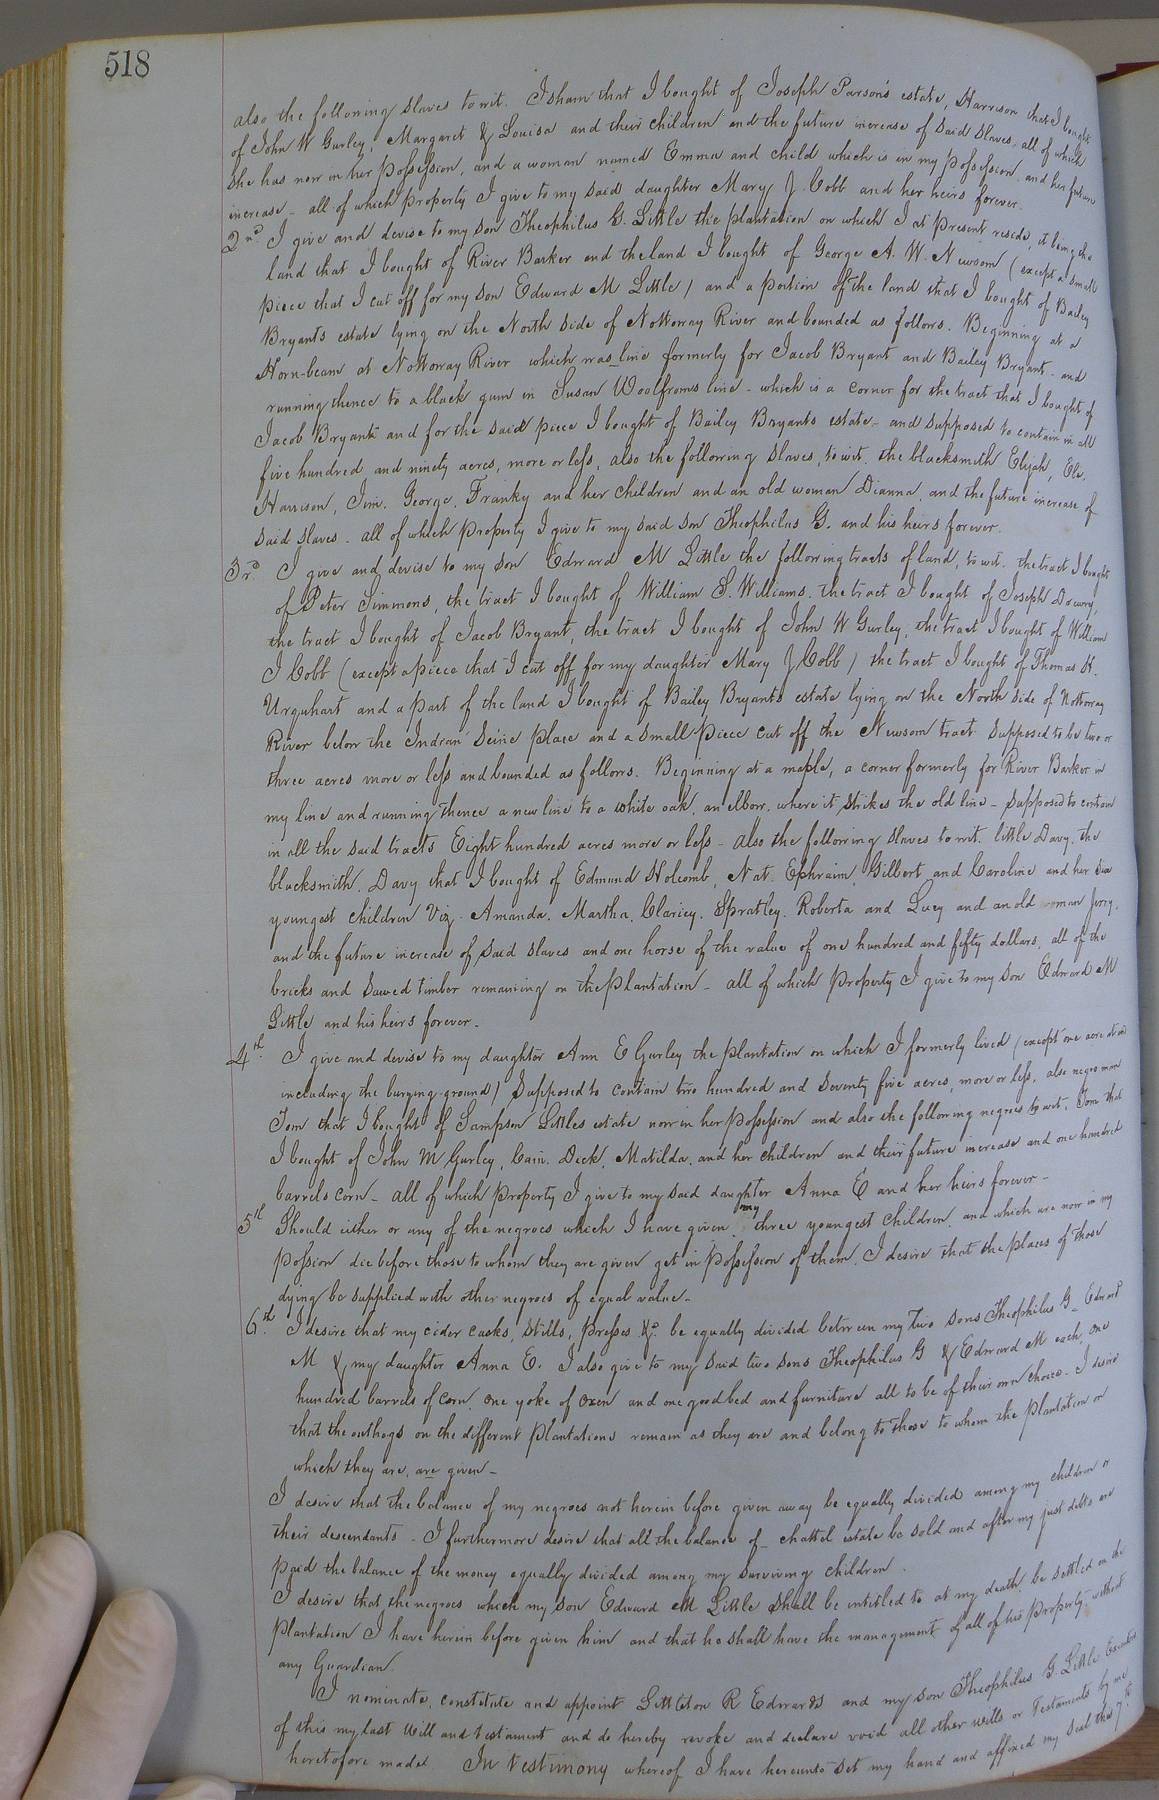 518
also the following slaves to wit. Isham that I bought of Joseph Parson's estate, Harrison that I bought
of John W Gurley, Margaret & Louisa and their children and the future increase of said slaves, all of which
she has now in her possession, and a woman named Emma and child which is in my possession and her future
increase - all of which property I give to my said daughter Mary J. Cobb and her heirs forever.
2nd. I give and devise to my son Theophilus G. Little the plantation on which I at present reside, it being the
land that I bought of River Barker and the land I bought of George A. W. Newsom (except a small
piece that I cut off for my son Edward M Little) and a portion of the land that I bought of Bailey
Bryants estate lying on the North side of Nottoway River and bounded as follows. Beginning at a
Horn-beam at Nottoway River which was line formerly for Jacob Bryant and Bailey Bryant - and
running thence to a black gum in Susan Woolfroms line - which is a corner for the tract that I bought of
Jacob Bryant and for the said piece I bought of Bailey Bryants estate - and supposed to contain in all
five hundred and ninety acres, more or less, also the following slaves, to wit. the blacksmith Elijah, Eli.
Harrison, Jim. George, Franky and her children and an old woman Dianna, and the future increase of
said slaves - all of which property I give to my said son Theophilus G. and his heirs forever.
3rd. I give and devise to my son Edward M Little the following tracts of land, to wit. the tract I bought
of Peter Simmons, the tract I bought of William S. Williams. the tract I bought of Joseph Drewry,
the tract I bought of Jacob Bryant, the tract I bought of John W Gurley, the tract I bought of William
J Cobb (except a piece that I cut off for my daughter Mary J Cobb) the tract I bought of Thomas H.
Urquhart and a part of the land I bought of Bailey Bryants estate lying on the North side of Nottoway
River below the Indian Seine place and a small piece cut off the Newsom tract supposed to be two or
three acres more or less and bounded as follows. Beginning at a maple, a corner formerly for River Barker in
my line and running thence a new line to a white oak, an elbow. where it strikes the old line - supposed to contain
in all the said tracts Eight hundred acres more or less - also the following slaves to wit. little Davy. the
blacksmith. Davy that I bought of Edmund Holcomb, Nat. Ephraim, Gilbert and Caroline and her six
youngest children Viz. Amanda. Martha. Claricy. Spratley. Roberta and Lucy and an old woman
and the future increase of said slaves and one horse of the value of one hundred and fifty dollars, all of the
bricks and sawed timber remaining on the plantation - all of which property I give to my son Edward M
Little and his heirs forever -
4th. I give and devise to my daughter Ann E Gurley the plantation on which I formerly lived (except one acre
including the burying-ground) Supposed to contain two hundred and seventy five acres, more or less, also negro man
Tom that I bought of Sampson Littles estate now in her possession and also the following negroes to wit. Tom that
I bought of John M Gurley, Cain. Dick, Matilda, and her children and their future increase and one hundred
barrels corn - all of which property I give to my said daughter Anna E and her heirs forever -
5th Should either or any of the negroes which I have given my three youngest children, and which are now in my
possion die before those to whom they are given get in possession of them, I desire that the places of those
dying be supplied with other negroes of equal value -
6th. I desire that my cider casks, stills, presses &c. be equally divided between my two sons Theophilus G - Edward
M & my daughter Anna E. I also give to my said two sons Theophilus G & Edward M each, one
hundred barrels of corn, one yoke of oxen and one good bed and furniture all to be of their own choice - I desire
that the outhogs on the different plantations remain as they are and belong to those to whom the plantation on
which they are, are given -
I desire that the balance of my negroes not herein before given away be equally divided among my children or
their descendants - I furthermore desire that all the balance of - chattel estate be sold and after my just debts are
paid the balance of the money equally divided among my surviving children.
I desire that the negroes which my son Edward M Little shall be intitled to at my death, be settled on the
plantation I have herein before given him and that he shall have the management of all of his property without
any Guardian.
I nominate, constitute and appoint Littleton R Edwards and my son Theophilus G. Little Executors
of this my last Will and testament and do hereby revoke and declare void all other wills or Testaments by me
heretofore made. In testimony whereof I have hereunto set my hand and affixed my seal this 7th